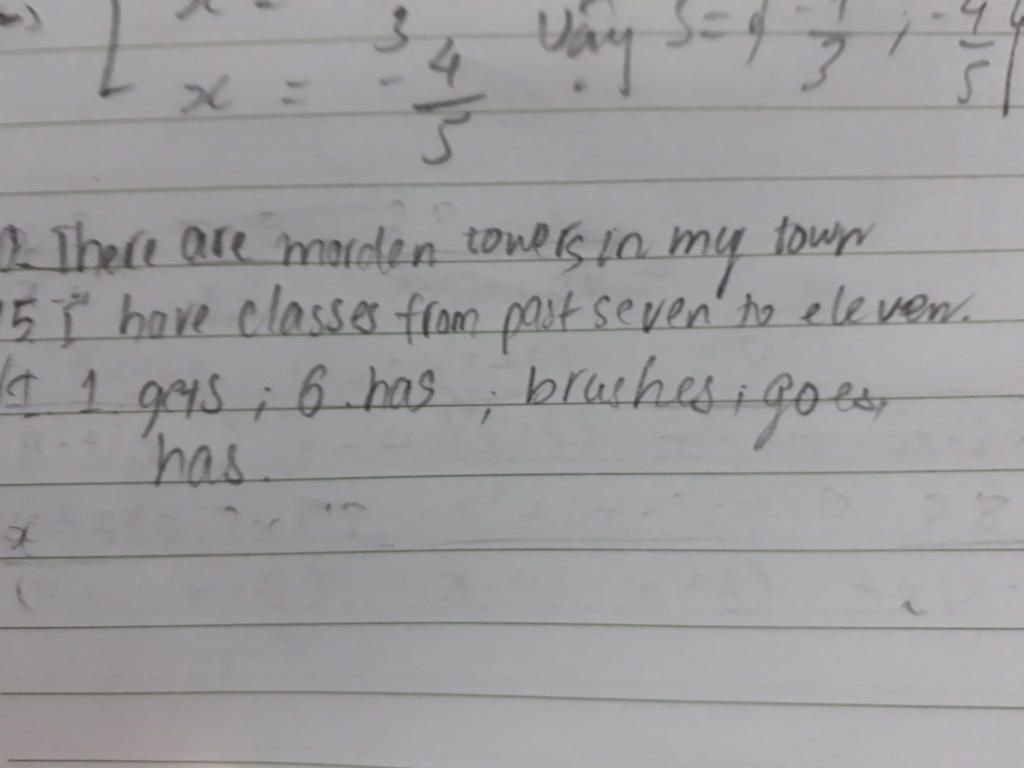 x =
3
x = - 4/5 Vậy S = { -1/3 ; -4/5 }
2. There are morden towers in my town
5 I have classes from past seven to eleven.
1 gets ; 6. has ; brushes ; goes,
has.
x